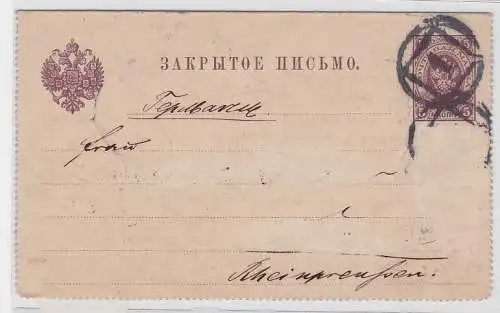 ЗАКРЫТОЕ ПИСЬМО.
Германия
Frau
Rheinpreussen.